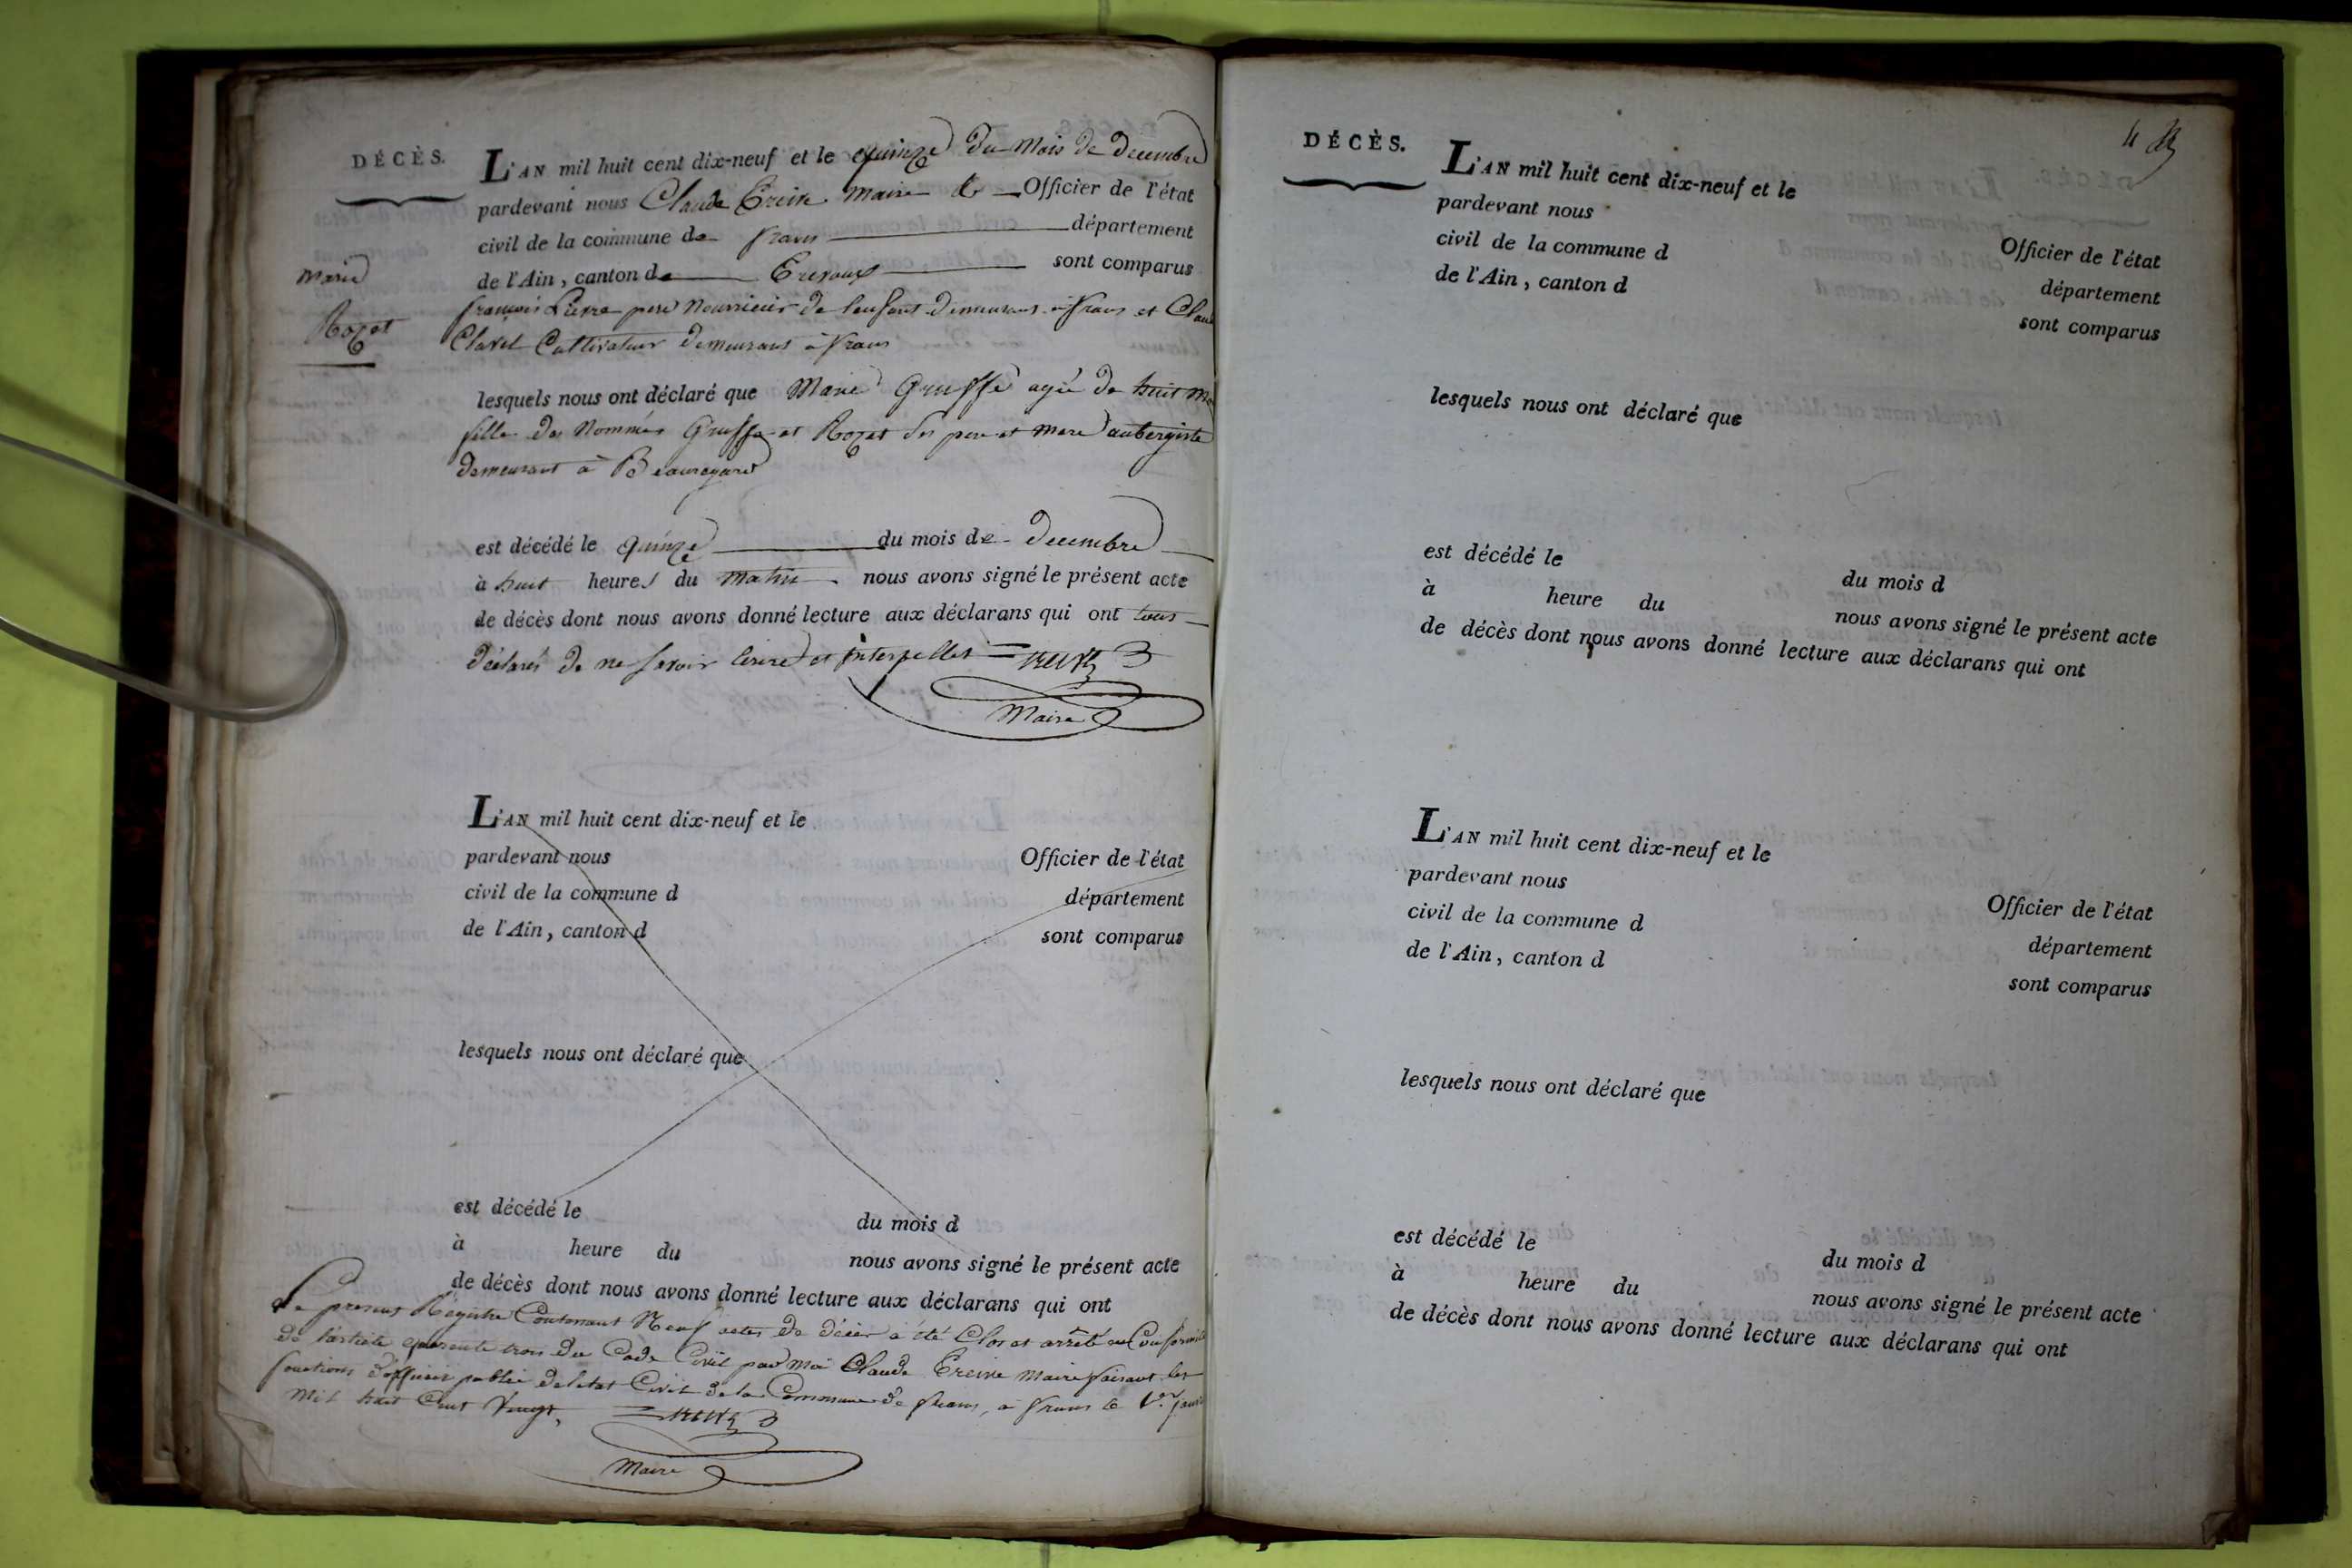 DÉCÈS.
L'AN mil huit cent dix-neuf et le quinze du mois de decembre
pardevant nous Claude Ereive maire & Officier de l'état
civil de la commune de frans département
de l'Ain, canton de Trevoux sont comparus
Marie
Rozet
françois Pierre pere nourricier de lenfant demeurant à frans et Claude
Clavel Cultivateur demeurant à frans
lesquels nous ont déclaré que Marie Gruffe agée de huit
fille des nommés Gruffe et Rozet ses pere et mere aubergiste
demeurant à Beauregard
est décédé le quinze du mois de decembre
à huit heures du matin nous avons signé le présent acte
de décès dont nous avons donné lecture aux déclarans qui ont tous
déclarés de ne savoir lecrire et interpelles
Maire
L'AN mil huit cent dix-neuf et le
pardevant nous Officier de l'état
civil de la commune d département
de l'Ain, canton d sont comparus
lesquels nous ont déclaré que
est décédé le du mois d
à heure du nous avons signé le présent acte
de décès dont nous avons donné lecture aux déclarans qui ont
Le present Régistre Contenant Neuf actes de décès a été Clos et arrêté en Conformité
de l'article quarante trois du Code Civil par moi Claude Ereive maire faisant les
fonctions d'officier public de létat Civil de la Commune de frans, à frans le 1er janvier
mil huit Cent Vingt,
Maire
4
DÉCÈS.
L'AN mil huit cent dix-neuf et le
pardevant nous Officier de l'état
civil de la commune d département
de l'Ain, canton d sont comparus
lesquels nous ont déclaré que
est décédé le du mois d
à heure du nous avons signé le présent acte
de décès dont nous avons donné lecture aux déclarans qui ont
L'AN mil huit cent dix-neuf et le
pardevant nous Officier de l'état
civil de la commune d département
de l'Ain, canton d sont comparus
lesquels nous ont déclaré que
est décédé le du mois d
à heure du nous avons signé le présent acte
de décès dont nous avons donné lecture aux déclarans qui ont